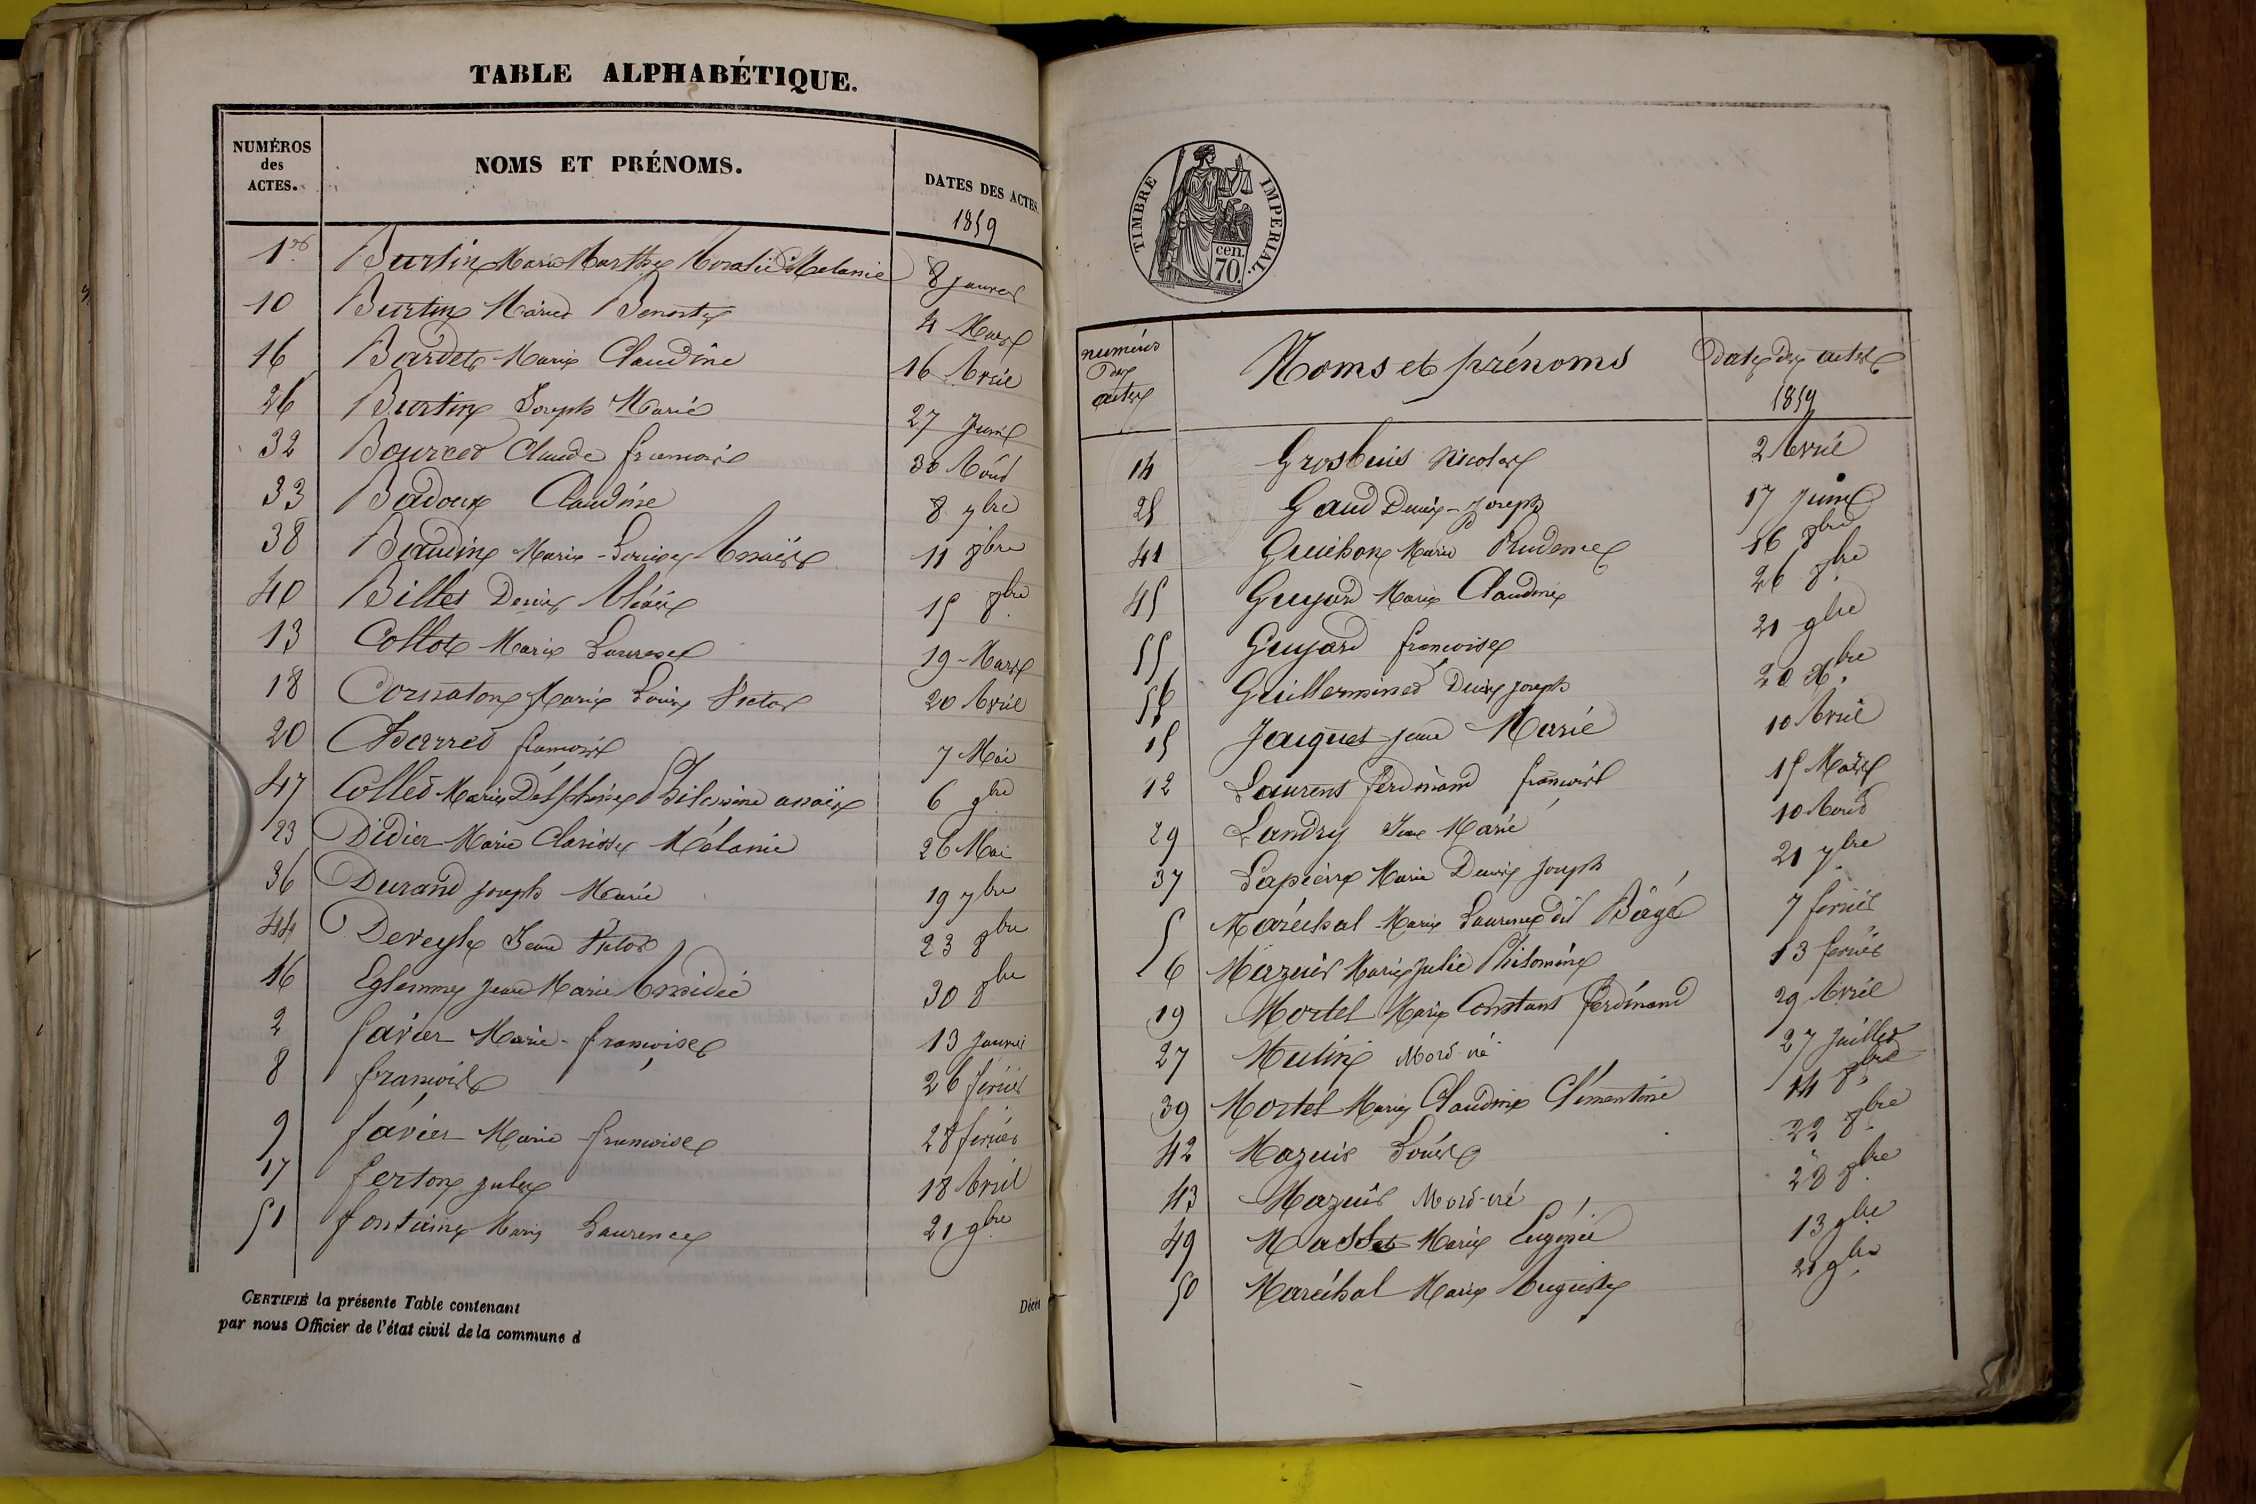 TABLE ALPHABÉTIQUE.
NUMÉROS des ACTES. NOMS ET PRÉNOMS. DATES DES ACTES
1859
1er Burtin Marie Marthe Rosalie Melanie 8 janvier
10 Burtin Marie Benoite 4 Mars
16 Bardet Marie Claudine 16 Avril
26 Burtin Joseph Marie 27 Juin
32 Bourcet Claude françois 30 Août
33 Badoux Claudine 8 7bre
38 Baudin Marie-Louise Anaïs 11 8bre
40 Billet Denis 15 8bre
13 Collot Marie Laurence 19 Mars
18 Cornaton Marie Louis Victor 20 Avril
20 Charret françois 7 Mai
47 Collet Marie Delphine Philomine anaïs 6 9bre
23 Didier Marie Clarisse Mélanie 26 Mai
36 Durand Joseph Marie 19 7bre
44 Deveyle Jean Victor 23 8bre
16 Eglemme Jean Marie 30 8bre
2 favier Marie-françoise 13 janvier
8 françois 26 fevrier
9 favier Marie françoise 28 fevrier
17 ferton jules 18 Avril
51 fontaine Marie Laurence 21 9bre
CERTIFIÉ la présente Table contenant
Décès
par nous Officier de l'état civil de la commune d
TIMBRE IMPERIAL.
cen.
70.
numéros des actes Noms et prénoms Dates des actes
1859
14 Grosbuis Nicolas 2 Avril
25 Gaud Denis-Joseph 17 Juin
41 Guichon Marie Prudence 16 8bre
45 Guyard Marie Claudine 26 8bre
55 Guyard françoise 21 9bre
56 Guillerminet Denis Joseph 20 Xbre
15 Jacquet Jean Marie 10 Avril
12 Laurent ferdinand françois 15 Mars
29 Landry Jean Marie 10 Août
37 Lapierre Marie Denis Joseph 21 7bre
5 Maréchal Marie Laurence dit Bagé 7 fevrier
6 Mazuir Marie Julie Philomène 13 fevrier
19 Mortel Marie Constant ferdinand 29 Avril
27 Mutin Mort-né 27 juillet
39 Mortel Marie Claudine Clémentine 14 8bre
42 Mazuir Louis 22 8bre
43 Mazuir Mort-né 23 8bre
49 Masset Marie Eugénie 13 9bre
50 Maréchal Marie Auguste 20 9bre